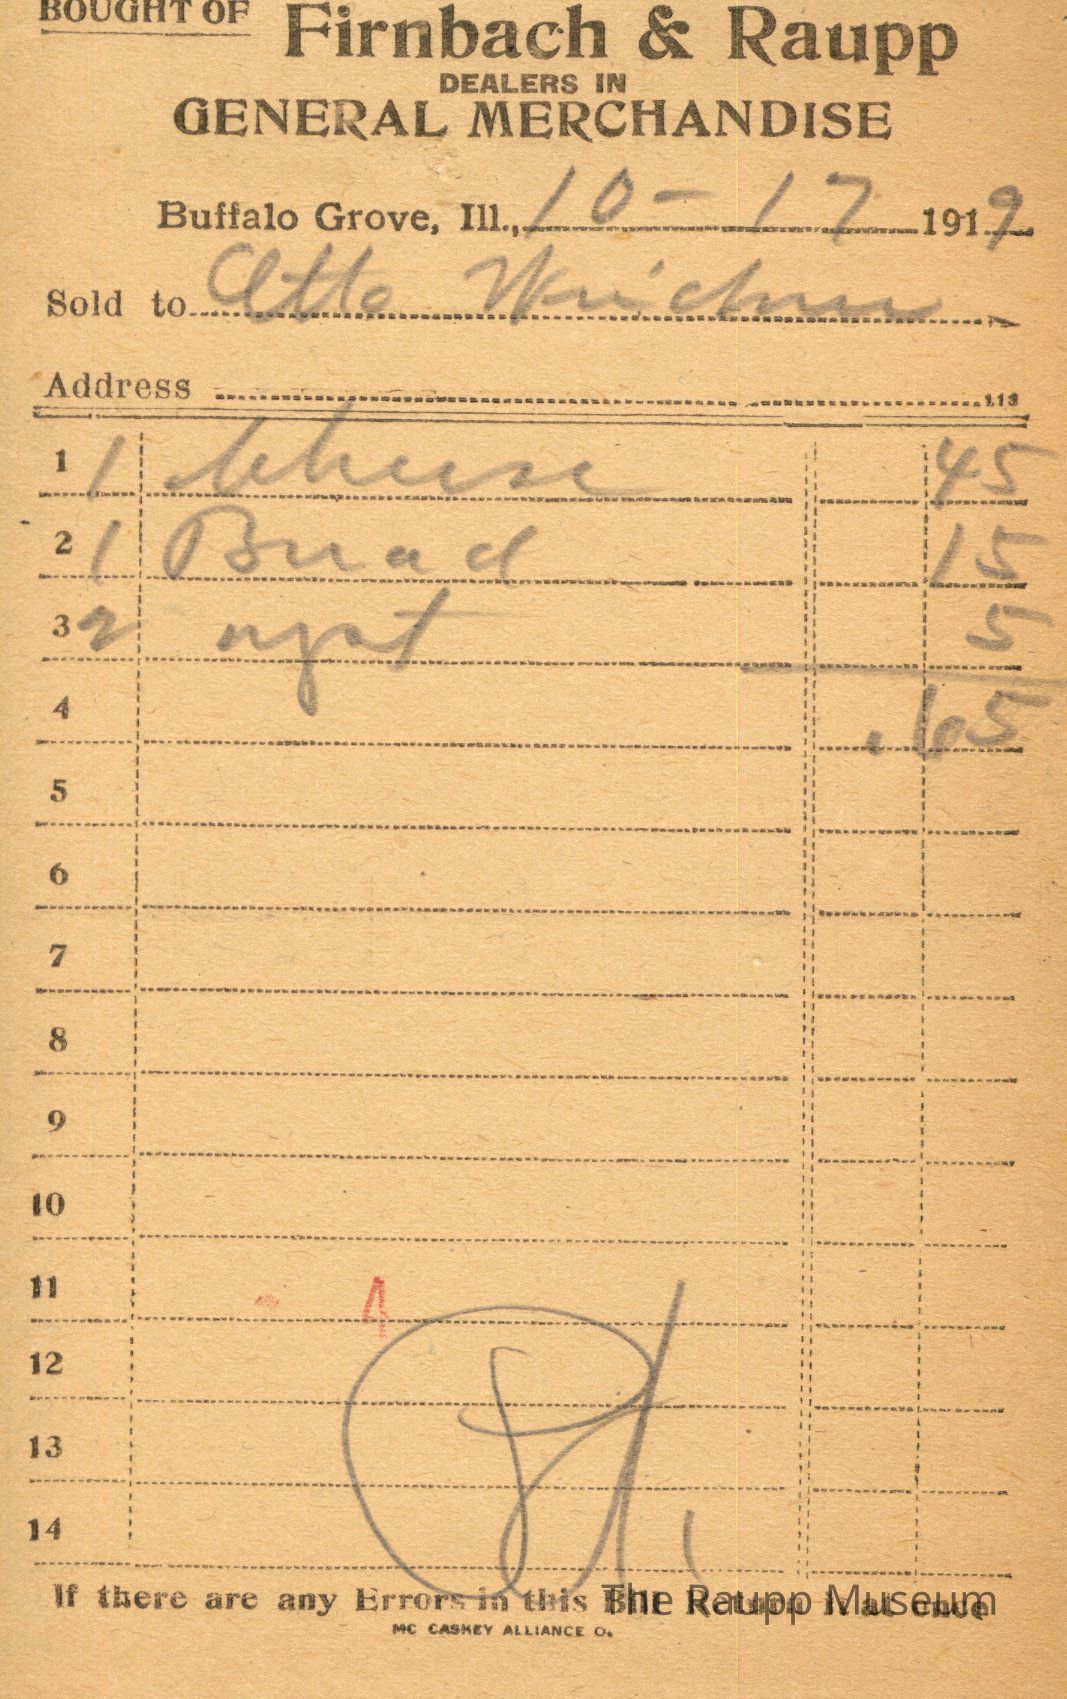 BOUGHT OF Firnbach & Raupp
DEALERS IN
GENERAL MERCHANDISE
Buffalo Grove, Ill., 10-17 1919
Sold to Otto
Address
113
1 1 Cheese 45
2 1 Bread 15
3 2 yeast 5
4 .65
5
6
7
8
9
10
11
12
13
14
If there are any Errors in this Bill Return it at once
The Raupp Museum
MC CASKEY ALLIANCE O.